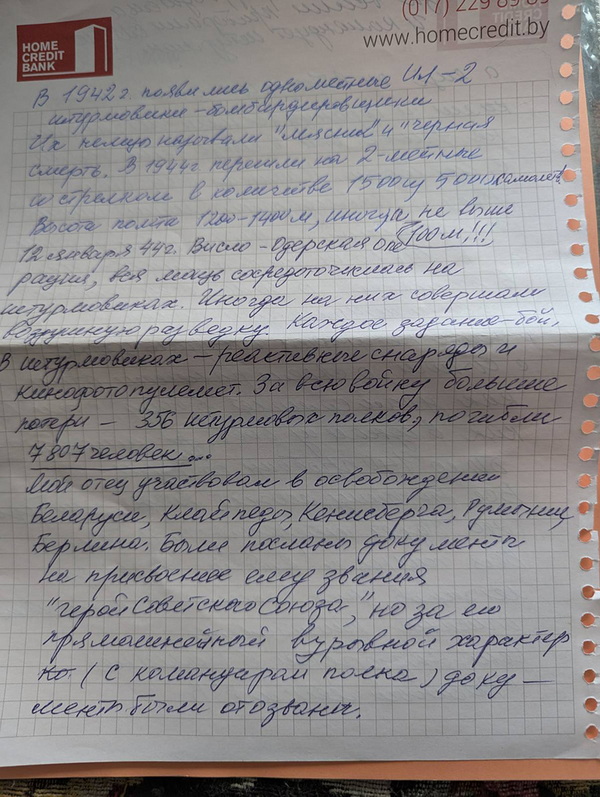 (017) 229 89 89
www.homecredit.by
HOME
CREDIT
BANK
В 1942 г. появились одноместные Ил-2
штурмовики-бомбардировщики
Их немцы называли "мясник" и "черная
смерть. В 1944г перешли на 2-местные
со стрелком в количестве 1500 5000 самолет!
Высота полта 1200-1400м, иногда, не выше
100м!!!
12 января 44г. Висло-Одерская опе
рация, вся мощь сосредоточилась на
штурмовиках. Иногда на них совершали
воздушную разведку. Каждое задание-бой,
В штурмовиках - реактивные снаряды и
кинофотопулемет. За всю войну большие
потери - 356 штурмовых полков, погибли
7807 человек...
Мой отец участвовал в освобождении
Беларуси, Клайпеды, Кенисберга, Румынии,
Берлина. Были посланы документы
на присвоение ему звания
"Герой Советского Союза," но за его
прямолинейный взрывной характер
(с командирам полка) доку-
менты были отозваны.